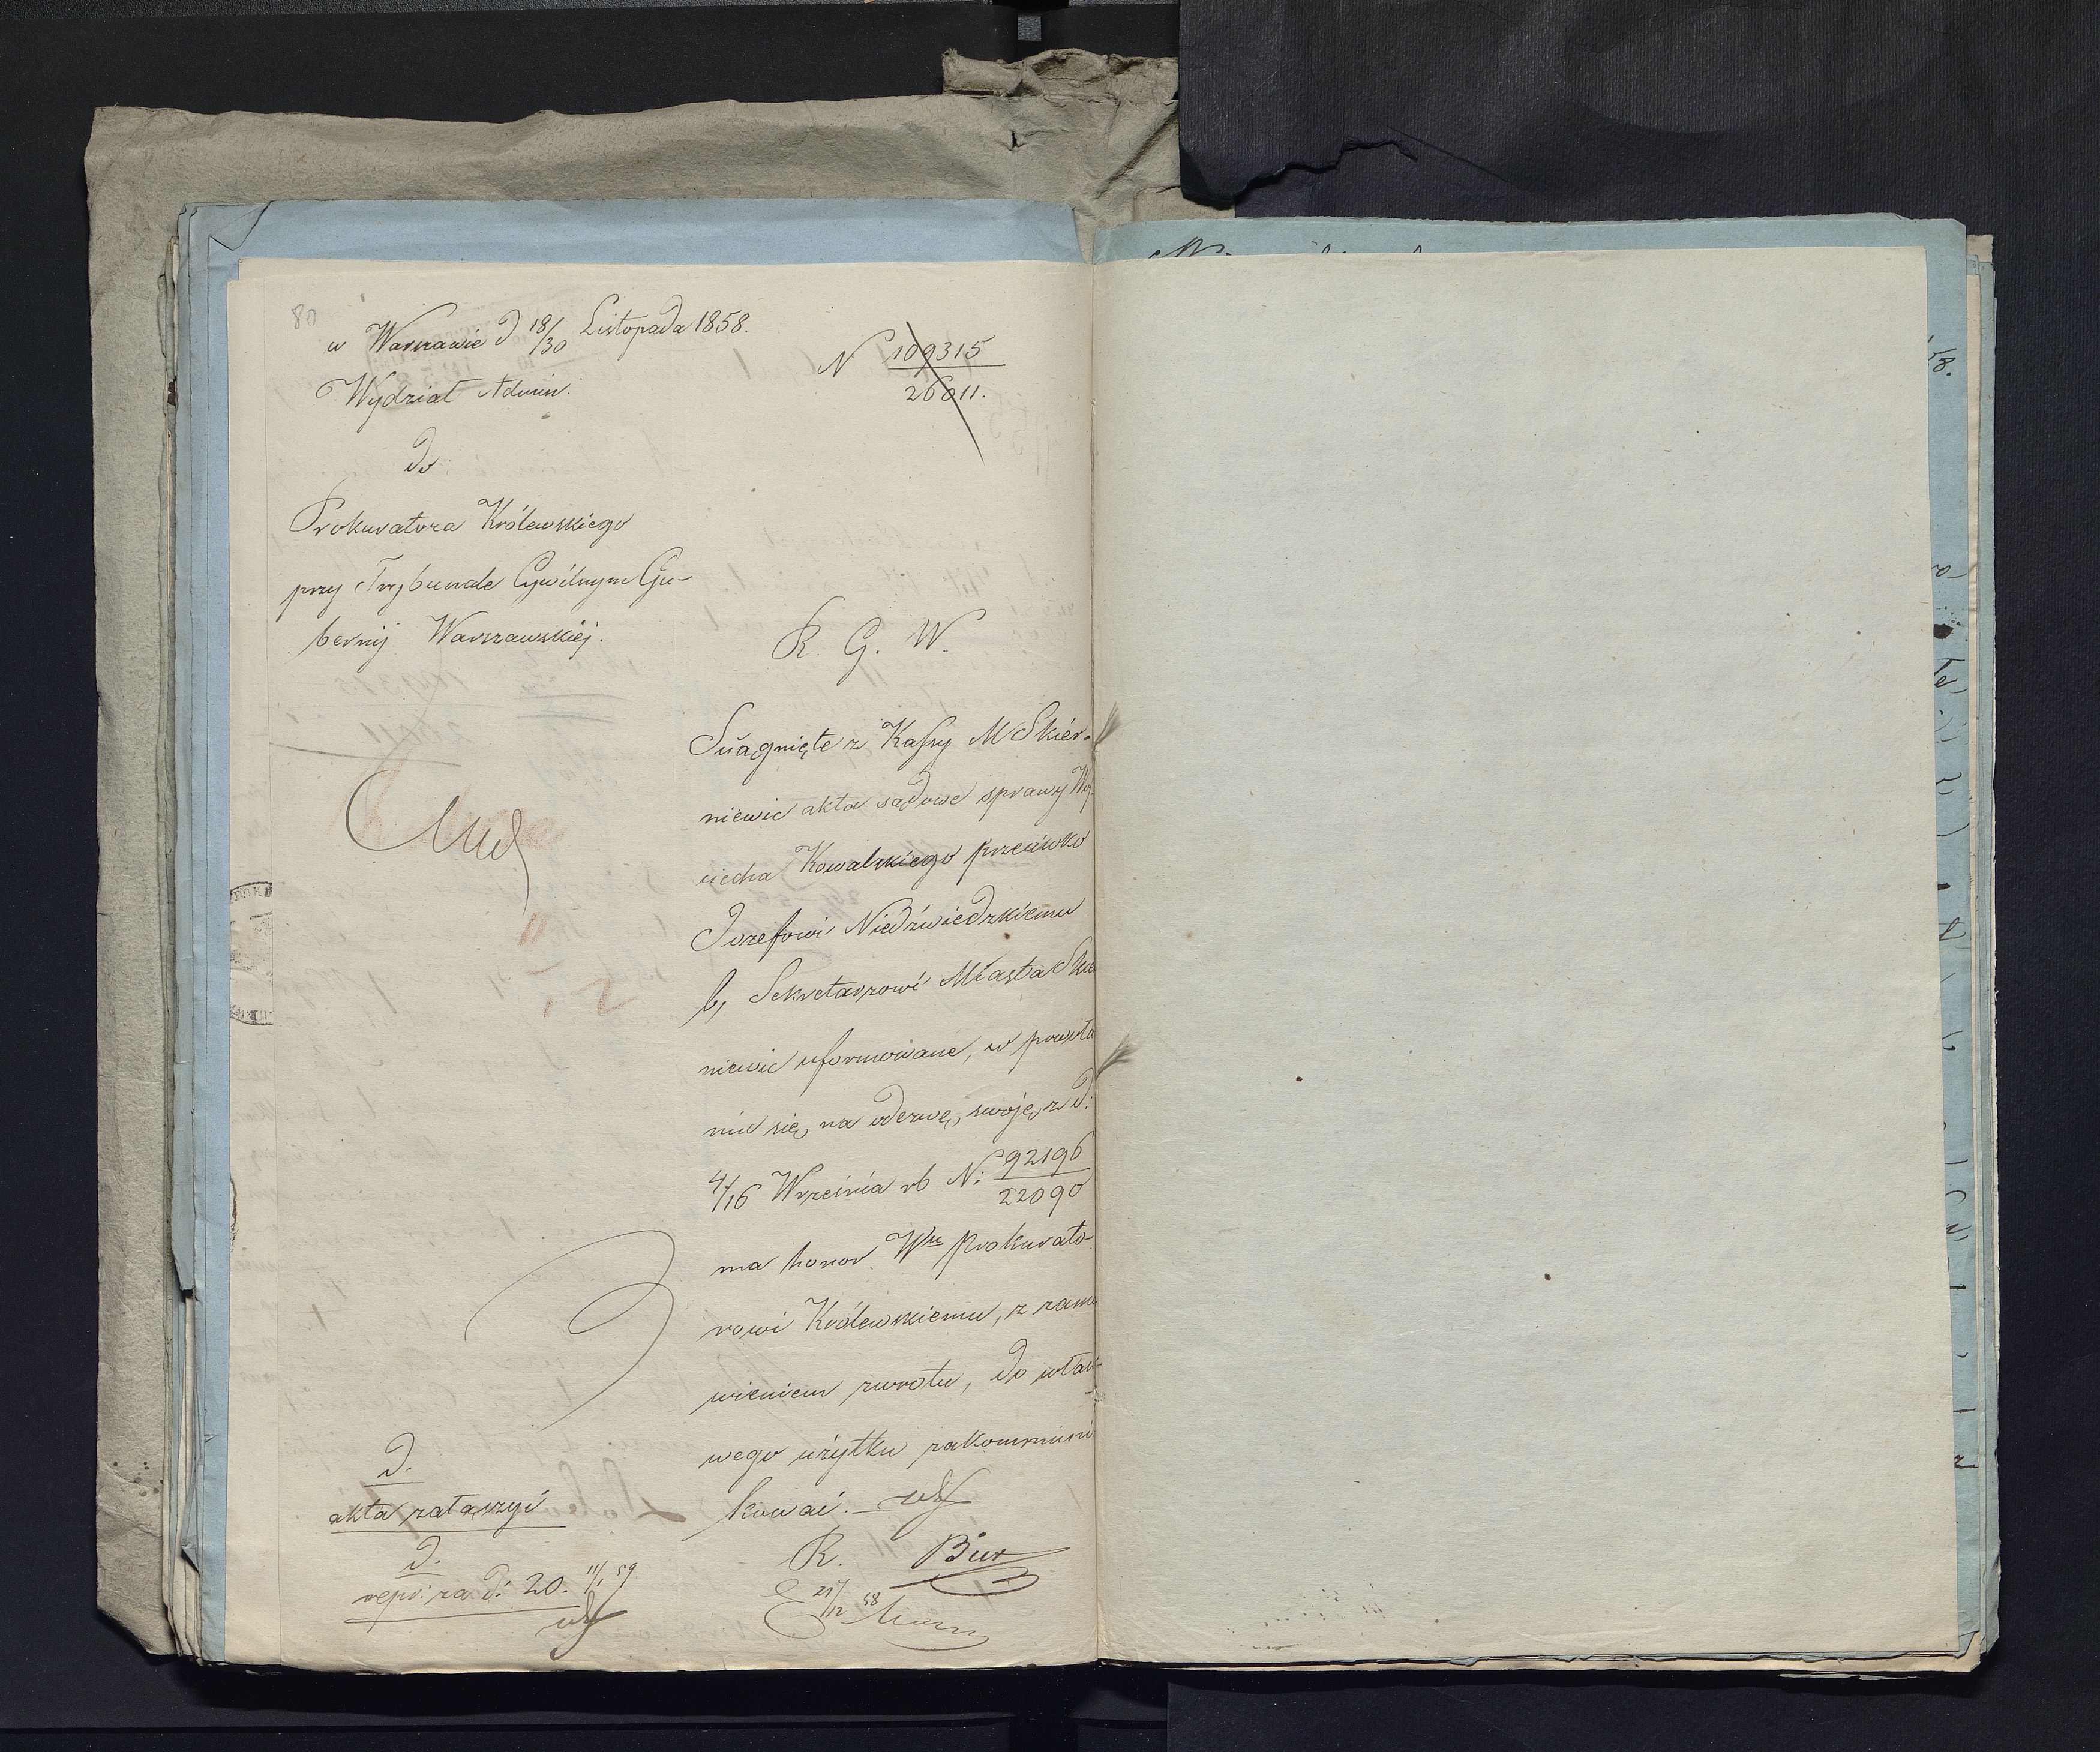 80
w Warszawie d 18/30 Listopada 1858.
N 109315/26011.
Wydział Admin:
do
Prokuratora Królewskiego
przy Trybunale Cywilnym Gu-
bernij Warszawskiej.
R. G. W.
Sciągnięte z Kassy M Skier-
niewic akta sądowe sprawy Woj-
ciecha Kowalskiego przeciwko
Jozefowi Niedźwiedzkiemu
b, Sekretarzowi Miasta Skier
niewic uformowane, w powoła
niu się, na odezwę, swoję, z d:
4/16 Września rb N: 92196/22090
ma honor Wu Prokurato-
rowi Królewskiemu, z zamó
wieniem zwrotu, do właś-
wego użytku zakommuni
kować.
D.
akta załączyć
D.
repr: za d: 20. 11/1 59
R. Biur
E 21/12 58